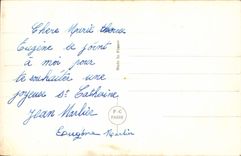 Chere Marie Thérèse
Eugène se joint
à moi pour
te souhaiter une
joyeuse Ste Catherine
Jean Marlier
Eougène
Made in France
P-C
PARIS